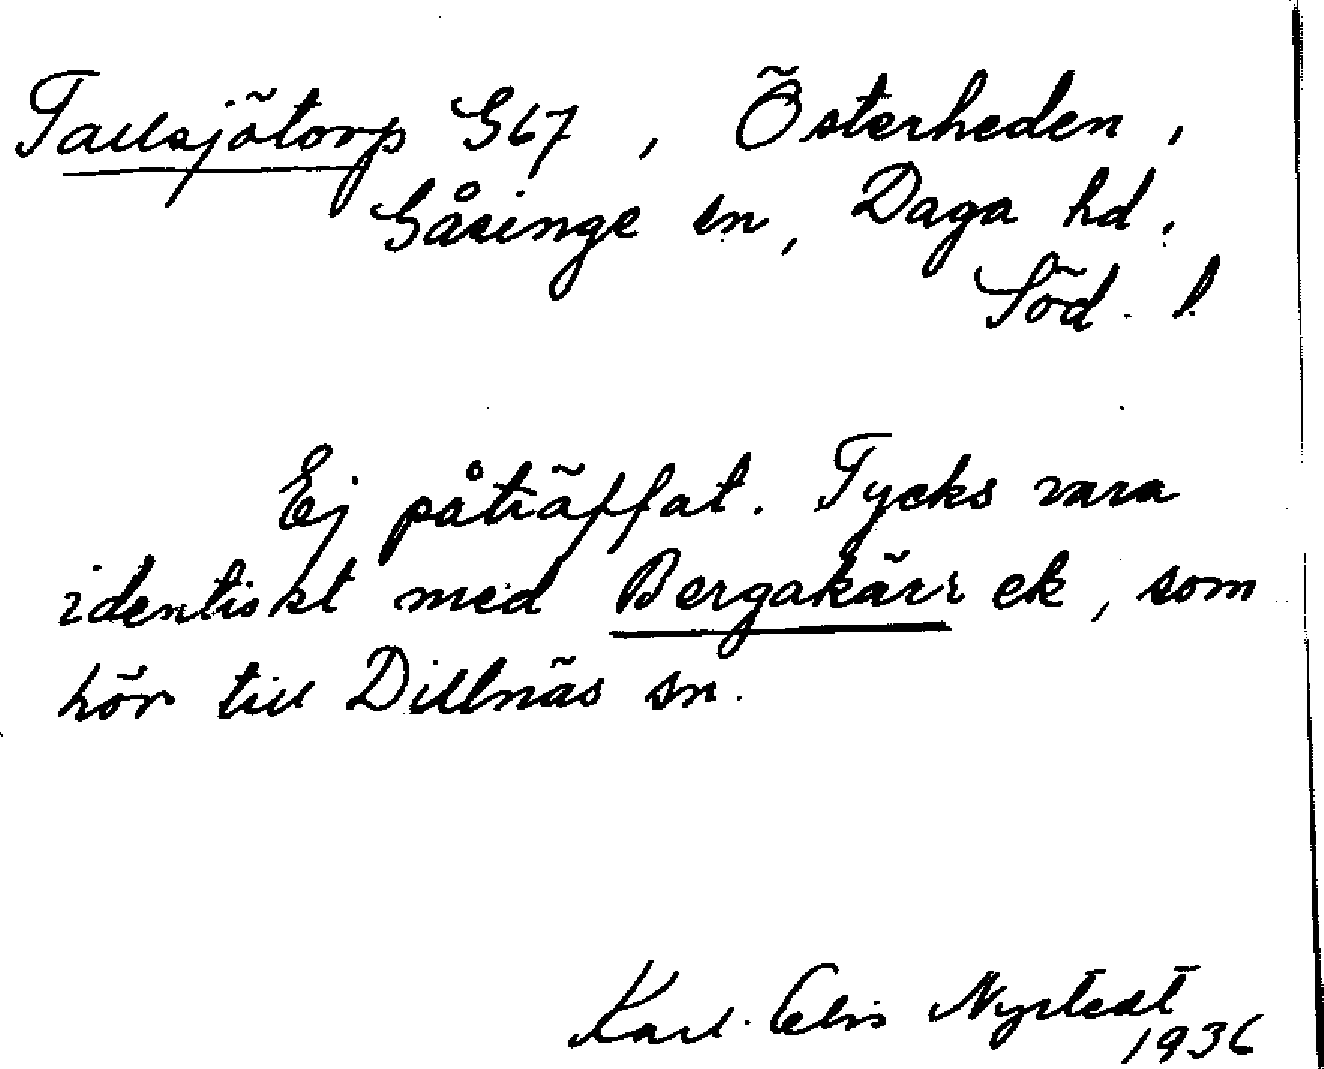 Tallsjötorp G67, Österheden,
Gåsinge sn, Daga hd.
Söd. l.
Ej påträffat. Tycks vara
identiskt med Bergakärr ek, som
hör till Dillnäs sn.
Karl-Elis Nystedt
1936